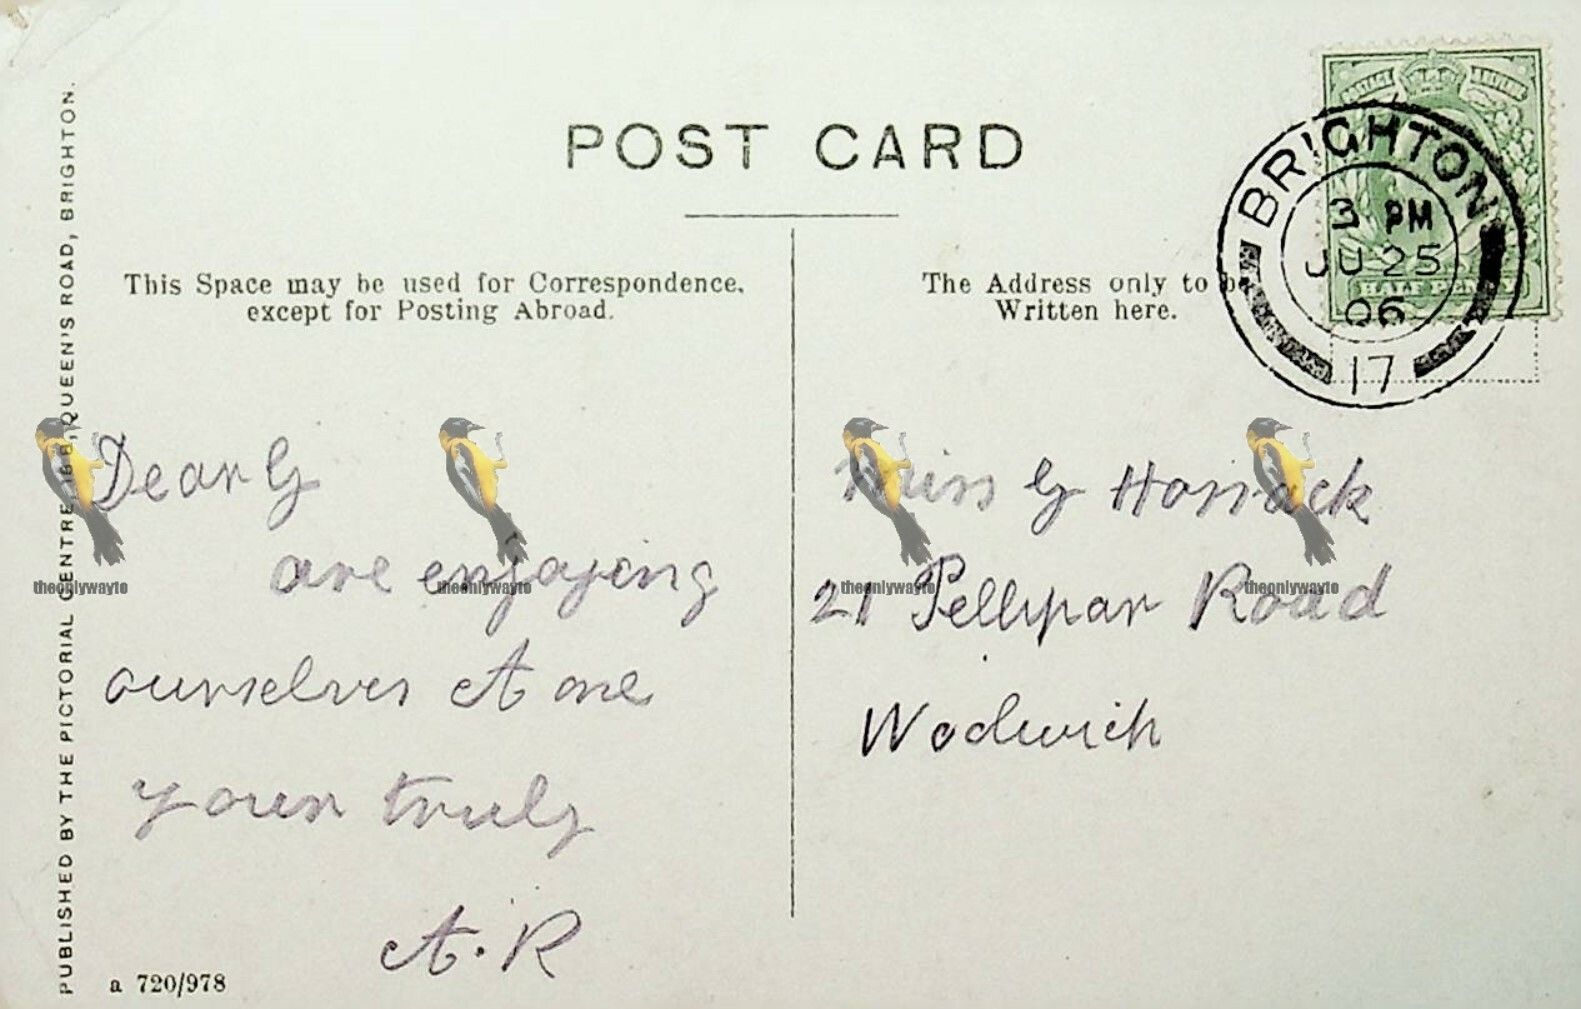 POST CARD
This Space may be used for Correspondence,
except for Posting Abroad.
The Address only to be
Written here.
POSTAGE REVENUE
BRIGHTON
3 PM
JU 25
06
17
HALF PENNY
Dear G
are enjoying
ourselves A one
yours truly
A.R
Miss G Hossack
21 Pellipar Road
Woolwich
PUBLISHED BY THE PICTORIAL CENTRE, QUEEN'S ROAD, BRIGHTON.
a 720/978
theonlywayto
theonlywayto
theonlywayto
theonlywayto